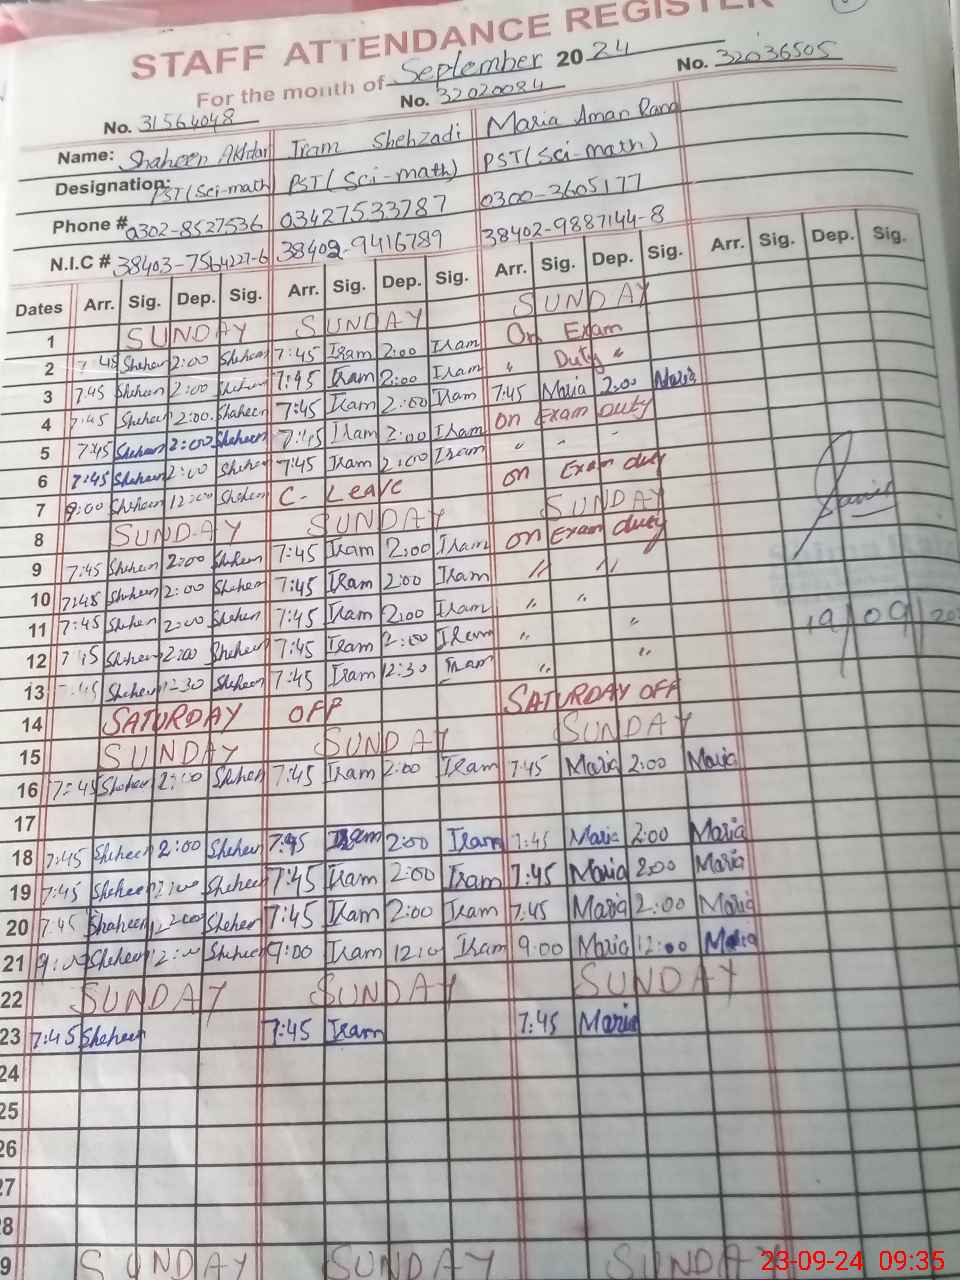 STAFF ATTENDANCE REGISTER
For the month of September 20 24
No. 31564048 No. 32020084 No. 32036505
Name: Shaheen Akhtar Iram Shehzadi Maria Aman Rana
Designation: PST(Sci-math) PST(Sci-math) PST(Sci-math)
Phone # 0302-8527536 03427533787 0300-3605177
N.I.C # 38403-7564227-6 38402-9416789 38402-9887144-8
Dates Arr. Sig. Dep. Sig. Arr. Sig. Dep. Sig. Arr. Sig. Dep. Sig. Arr. Sig. Dep. Sig.
1 SUNDAY SUNDAY SUNDAY
2 7:45 Sheheen 2:00 Sheheen 7:45 Iram 2:00 Iram On Exam
3 7:45 Sheheen 2:00 Sheheen 7:45 Iram 2:00 Iram " Duty "
4 7:45 Sheheen 2:00 Shaheen 7:45 Iram 2:00 Iram 7:45 Maria 2:00 Maria
5 7:45 Sheheen 2:00 Sheheen 7:45 Iram 2:00 Iram on Exam Duty
6 7:45 Sheheen 2:00 Sheheen 7:45 Iram 2:00 Iram " " "
7 9:00 Sheheen 12:00 Sheheen C- Leave on Exam duty
8 SUNDAY SUNDAY SUNDAY
9 7:45 Sheheen 2:00 Sheheen 7:45 Iram 2:00 Iram on Exam duty
10 7:45 Sheheen 2:00 Sheheen 7:45 Iram 2:00 Iram " "
11 7:45 Sheheen 2:00 Sheheen 7:45 Iram 2:00 Iram " "
12 7:45 Sheheen 2:00 Sheheen 7:45 Iram 2:00 Iram " "
13 7:45 Sheheen 12:30 Sheheen 7:45 Iram 12:30 Iram " "
14 SATURDAY OFF SATURDAY OFF
15 SUNDAY SUNDAY SUNDAY
16 7:45 Sheheen 2:00 Sheheen 7:45 Iram 2:00 Iram 7:45 Maria 2:00 Maria
17
18 7:45 Sheheen 2:00 Sheheen 7:45 Iram 2:00 Iram 7:45 Maria 2:00 Maria
19 7:45 Sheheen 2:00 Sheheen 7:45 Iram 2:00 Iram 7:45 Maria 2:00 Maria
20 7:45 Shaheen 12:00 Sheheen 7:45 Iram 2:00 Iram 7:45 Maria 2:00 Maria
21 9:00 Sheheen 12:00 Sheheen 9:00 Iram 12:00 Iram 9:00 Maria 12:00 Maria
22 SUNDAY SUNDAY SUNDAY
23 7:45 Sheheen 7:45 Iram 7:45 Maria
24
25
26
27
28
9 SUNDAY SUNDAY SUNDAY
19/09/202
23-09-24 09:35